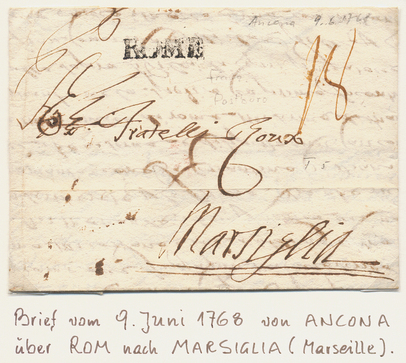 Ancona 9.6.1768
ROME
18
Fratelli Roux
Postbüro
T.5
6
Marsiglia
Brief vom 9. Juni 1768 von ANCONA
über ROM nach MARSIGLIA (Marseille).